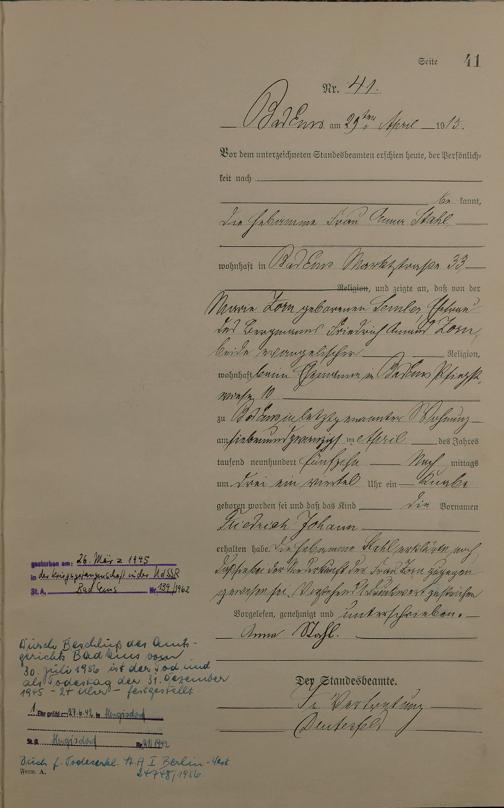 Seite 41
Nr. 41.
Bad Ems am 29ten April 1915.
Vor dem unterzeichneten Standesbeamten erschien heute, der Persönlich-
keit nach
be kannt,
die Hebamme Frau Anna Stahl
wohnhaft in Bad Ems Marktstraße 33
Religion, und zeigte an, daß von der
Marie Zorn geborenen Ehefrau
des Bergmanns Friedrich August Zorn,
beide evangelischer Religion,
wohnhaft beim Ehemanne in Bad Ems
10
zu Bad Ems in letztgenannter Wohnung
am siebenundzwanzigsten April des Jahres
tausend neunhundert fünfzehn Nach mittags
um drei ein viertel Uhr ein Knabe
geboren worden sei und daß das Kind die Vornamen
Friedrich Johann
erhalten habe. Die Hebamme Stahl erklärte, auch
daß sie bei der Niederkunft der Frau Zorn zugegen
gewesen sei. Druckwort gestrichen
Vorgelesen, genehmigt und unterschrieben.
Anna Stahl.
Der Standesbeamte.
In Vertretung
gestorben am: 26. März 1945
in der Kriegsgefangenschaft in der UdSSR
St. A. Bad Ems Nr. 139/1962
Durch Beschluß des Amts-
gerichts Bad Ems vom
30. Juli 1956 ist der Tod und
als Todestag der 31. Dezember
1945 - 24 Uhr - festgestellt
1. Ehe geschl. 27.4.42 in Hergisdorf
St. A. Hergisdorf Nr. /1942
Buch f. Todeserkl. St. A I Berlin-West
24748/1956
Form. A.